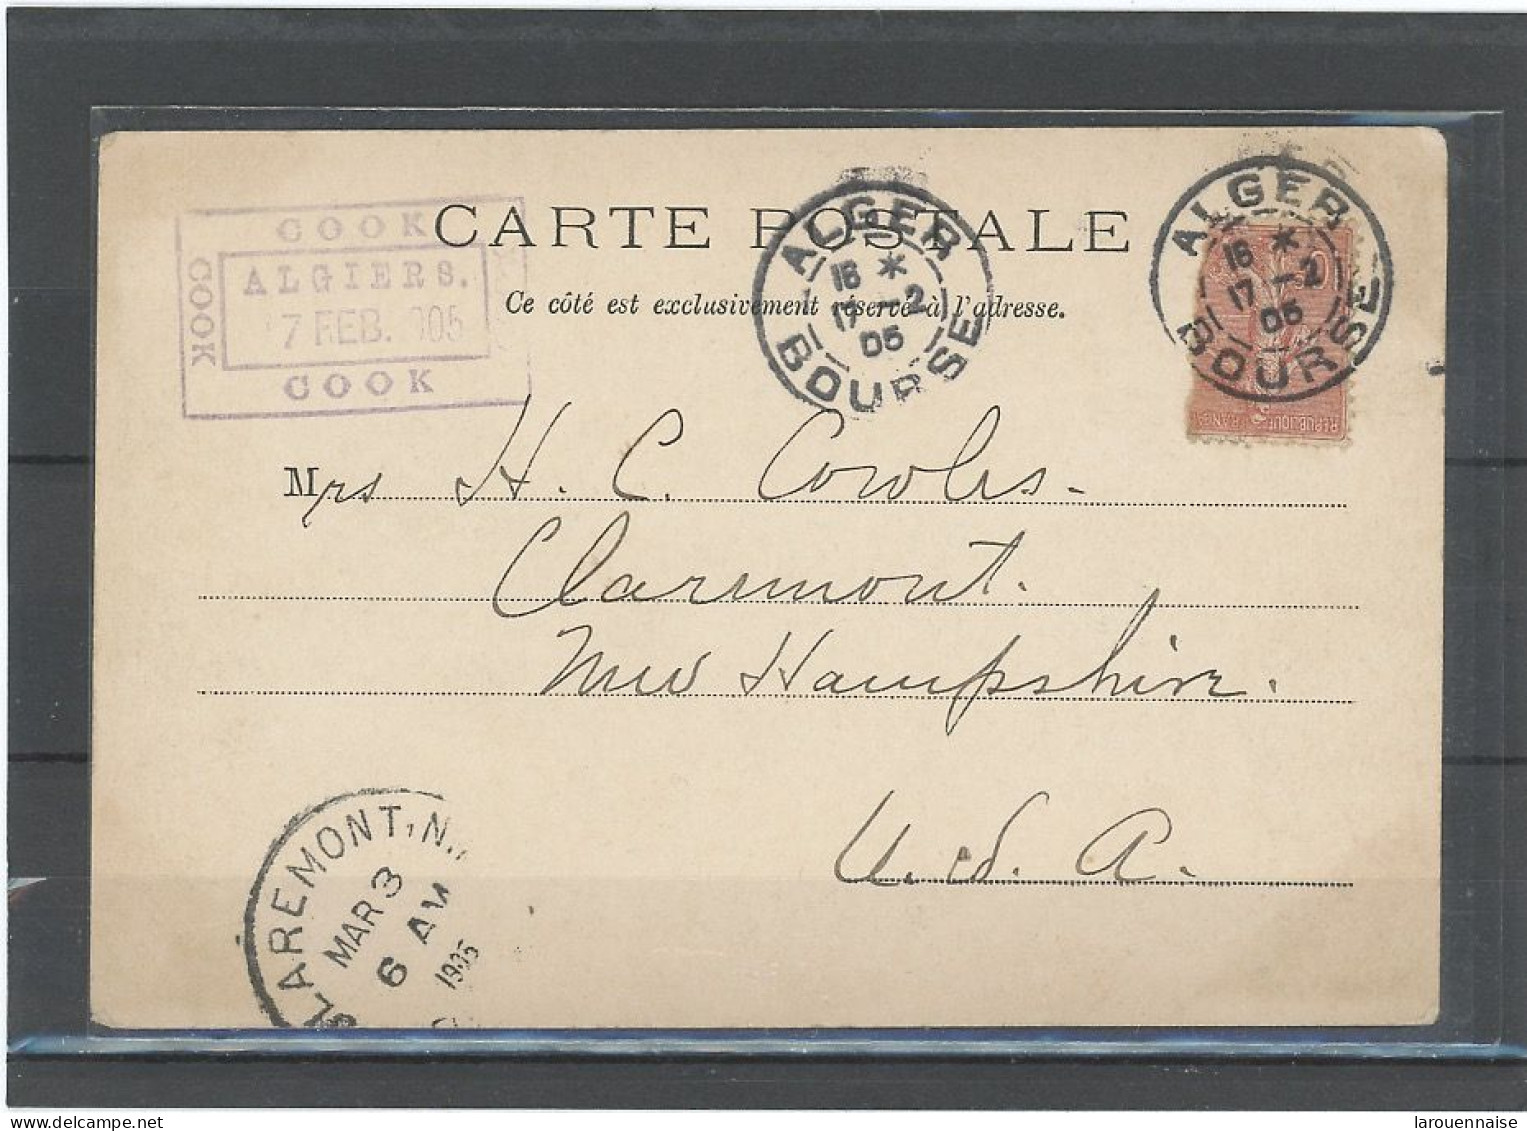 COOK
COOK
ALGIERS.
7 FEB. 905
COOK
CARTE POSTALE
Ce côté est exclusivement réservé à l'adresse.
ALGER
16 *
17 -2
05
BOURSE
ALGER
16 *
17 -2
05
BOURSE
REPUBLIQUE
Mrs H. C. Cowles.
Claremont.
New Hampshire.
U. S. A.
CLAREMONT, N.
MAR 3
6 AM
1905
larouennaise